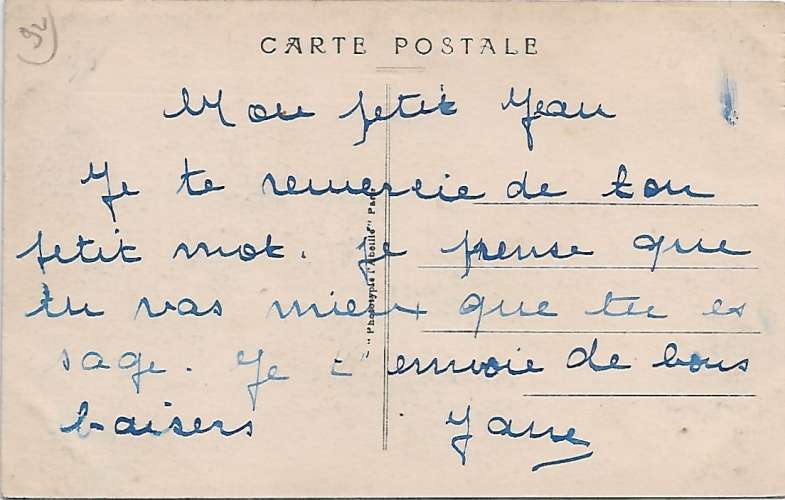 92
CARTE POSTALE
Mon petit Jean
Je te remercie de ton
petit mot. Je pense que
tu vas mieux que tu es
sage. Je t'envoie de bons
baisers Jane
"Phototypie l'Abeille" Paris